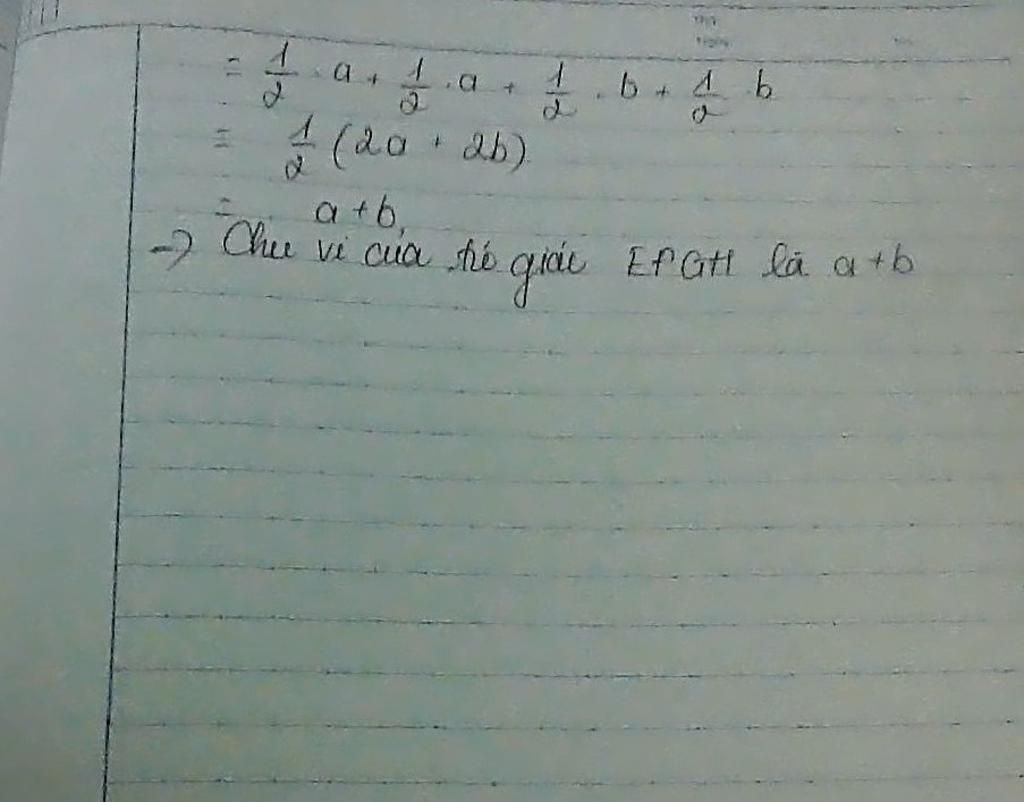 = 1/2 . a + 1/2 . a + 1/2 . b + 1/2 b
= 1/2 (2a + 2b)
= a + b,
→ Chu vi của tứ giác EFGH là a + b